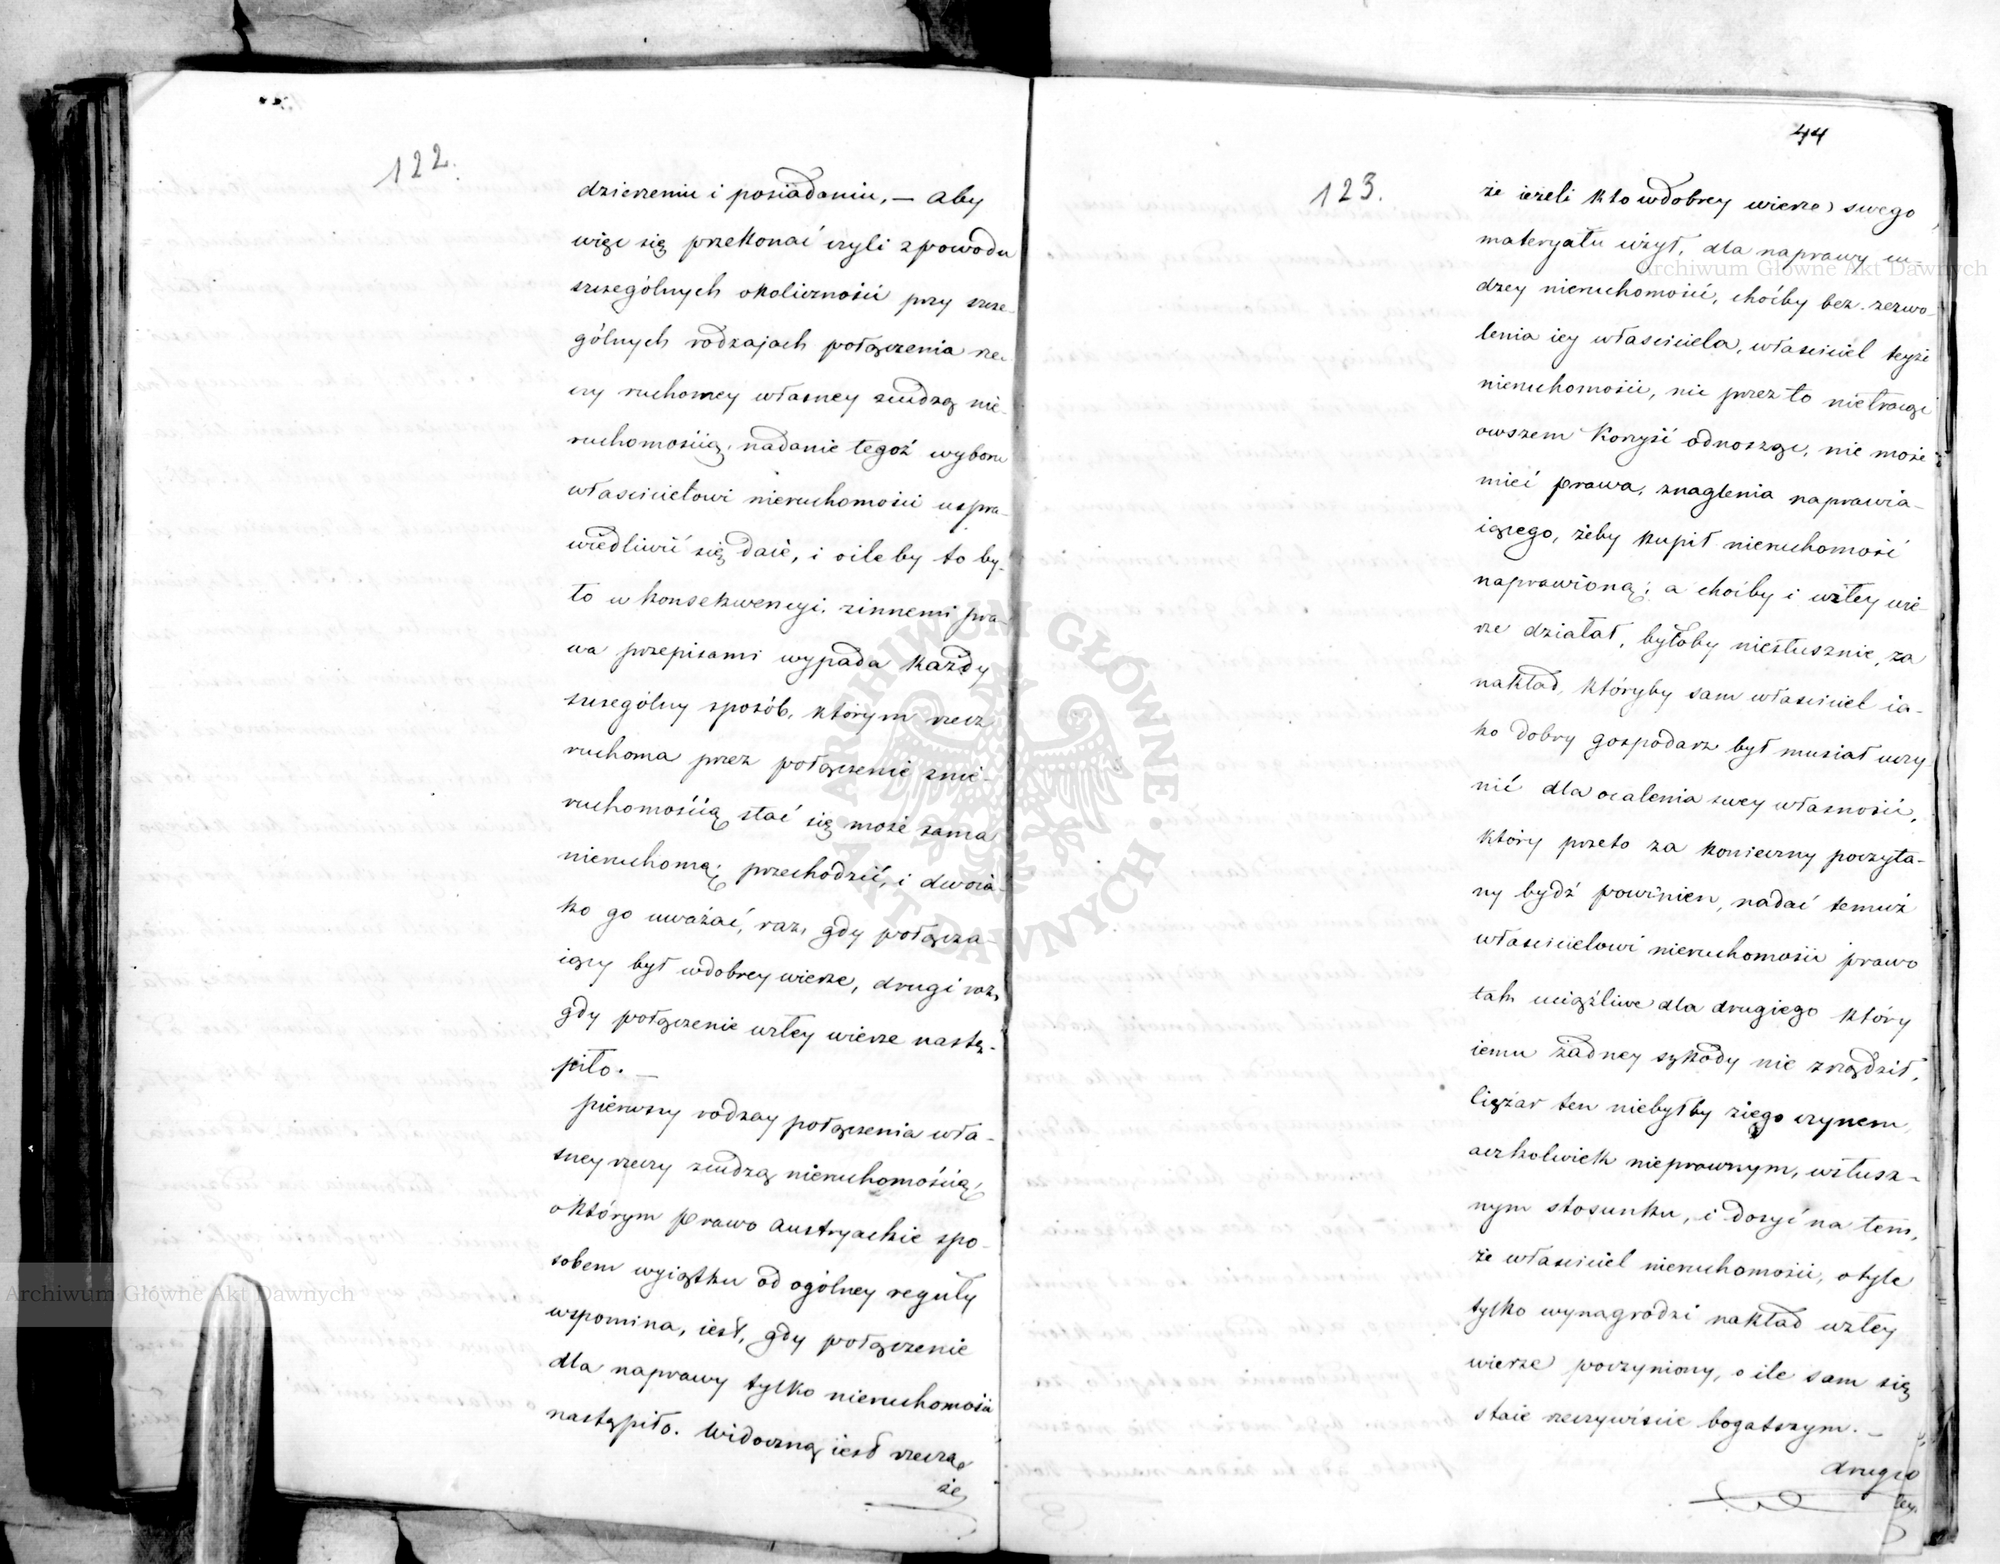 122.
dzierzeniu i posiadaniu, — aby
więc się przekonać czyli z powodu
szczególnych okoliczności przy szcze-
gólnych rodzajach połączenia rze-
czy ruchomey własney z cudzą nie-
ruchomością, nadanie tegoż wyboru
właścicielowi nieruchomości uspra-
wiedliwić się daie, i oileby to by-
ło w konsekwencyi z innemi pra-
wa przepisami wypada każdy
szczególny sposób, którym rzecz
ruchoma przez połączenie z nie-
ruchomością stać się może sama
nieruchomą; przechodzić, i dwoia-
ko go uważać, raz, gdy połącza-
iący był w dobrey wierze, drugi raz,
gdy połączenie w złey wierze nastą-
piło. —
pierwszy rodzay połączenia wła-
sney rzeczy z cudzą nieruchomością,
o którym prawo Austryackie spo-
sobem wyiątku od ogólney reguły
wspomina, iest, gdy połączenie
dla naprawy tylko nieruchomości
nastąpiło. Widoczną iest rzeczą,
że
44
123.
że ieżeli kto w dobrey wierze swego
materyału użył, dla naprawy cu-
dzey nieruchomości, choćby bez zezwo-
lenia iey właściciela, właściciel teyże
nieruchomości, nic przez to nietracąc
owszem korzyść odnosząc, nie może
mieć prawa, znaglenia naprawia-
iącego, żeby kupił nieruchomość
naprawioną; a choćby i w złey wie-
rze działał, byłoby niesłusznie, za
nakład, któryby sam właściciel ia-
ko dobry gospodarz był musiał uczy-
nić dla ocalenia swey własności,
który przeto za konieczny poczyta-
ny bydź powinien, nadać temuż
właścicielowi nieruchomości prawo
tak uciążliwe dla drugiego który
iemu żadney szkody nie zrządził,
Ciężar ten niebyłby z iego czynem,
aczkolwiek nieprawnym, w słusz-
nym stosunku, i dosyć na tem,
że właściciel nieruchomości, o tyle
tylko wynagrodzi nakład w złey
wierze poczyniony, o ile sam się
staie rzeczywiście bogatszym. —
drugie
Archiwum Główne Akt Dawnych
Archiwum Główne Akt Dawnych
ARCHIWUM GŁÓWNE · AKT DAWNYCH ·